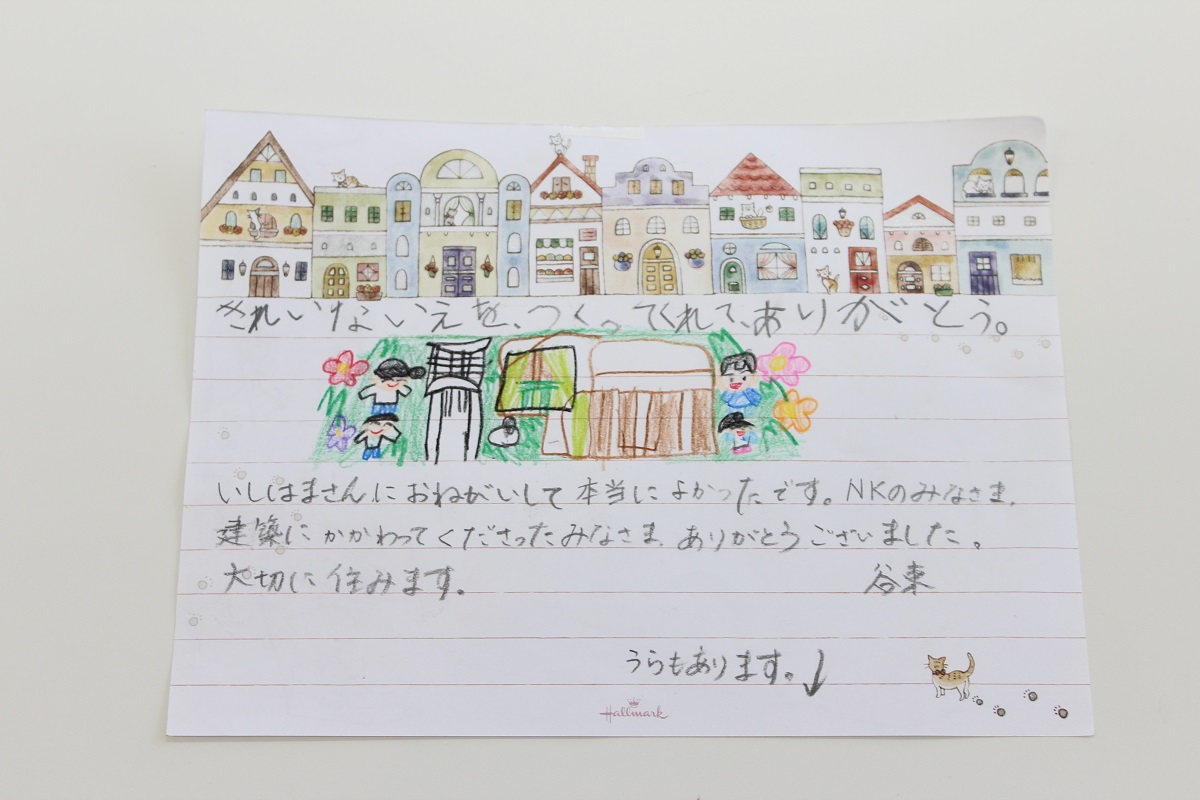 きれいないえを、つくってくれて、ありがとう。
いしはまさんにおねがいして本当によかったです。NKのみなさま、
建築にかかわってくださったみなさま、ありがとうございました。
大切に住みます。 谷東
うらもあります。↓
Hallmark